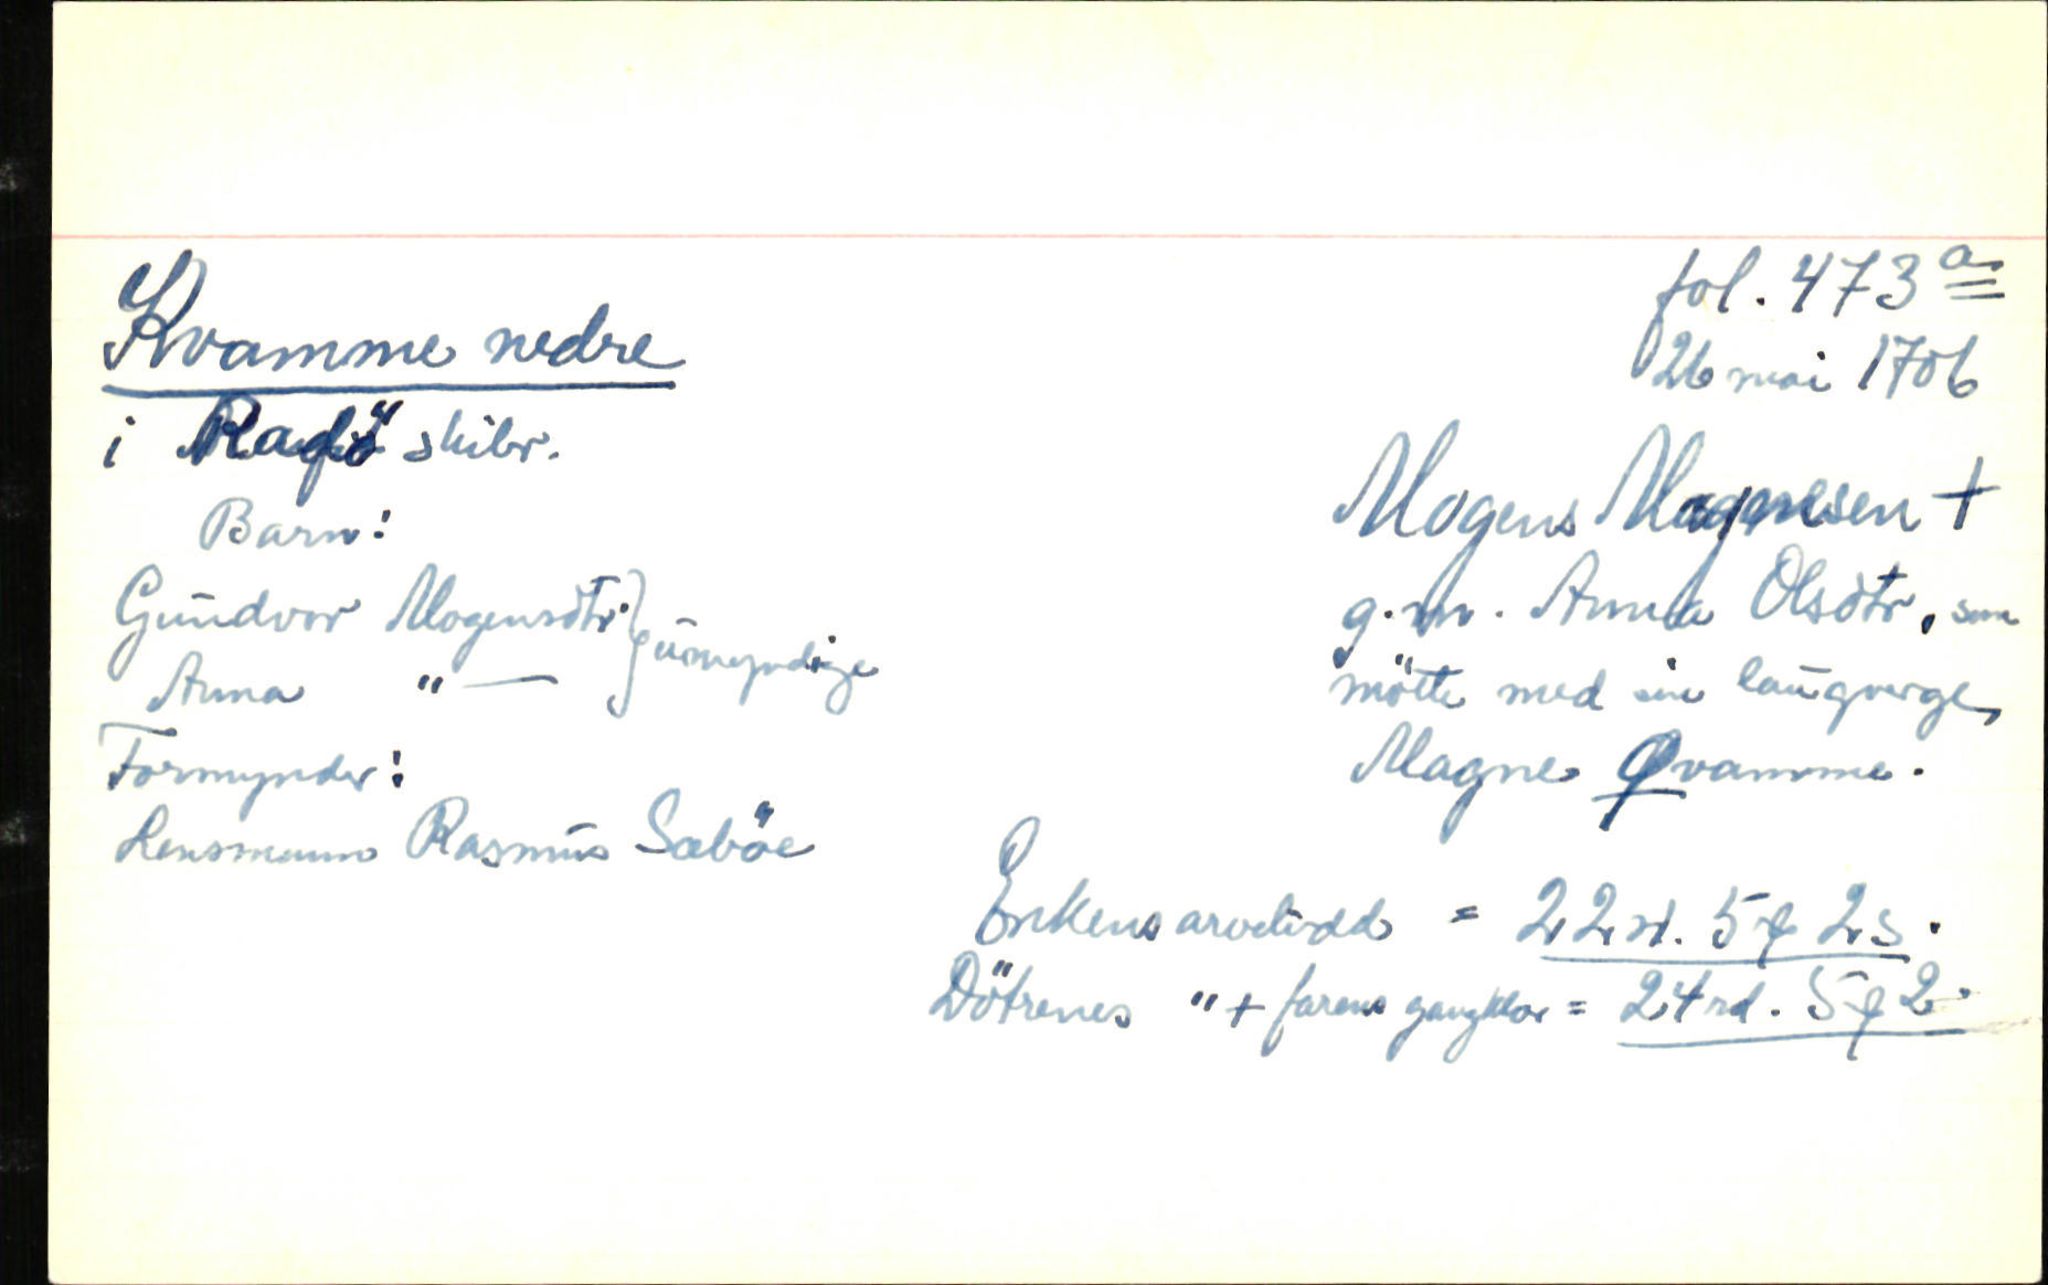 Kvamme nedre
i Radö skibr.
Barn:
Gŭndvor Mogensdtr.} ŭmyndige
Anna " —
Formynder:
Lensmann Rasmŭs Sæböe
fol. 473 a
26 mai 1706
Mogens Magnesen +
g.m. Anna Olsdtr, som
mötte med sin laŭgverge,
Magne Qvamme.
Enkens arvelodd = 22 rd. 5 ƒ 2 s.
Dötrenes " + farens gangklær = 24 rd. 5 ƒ 2.